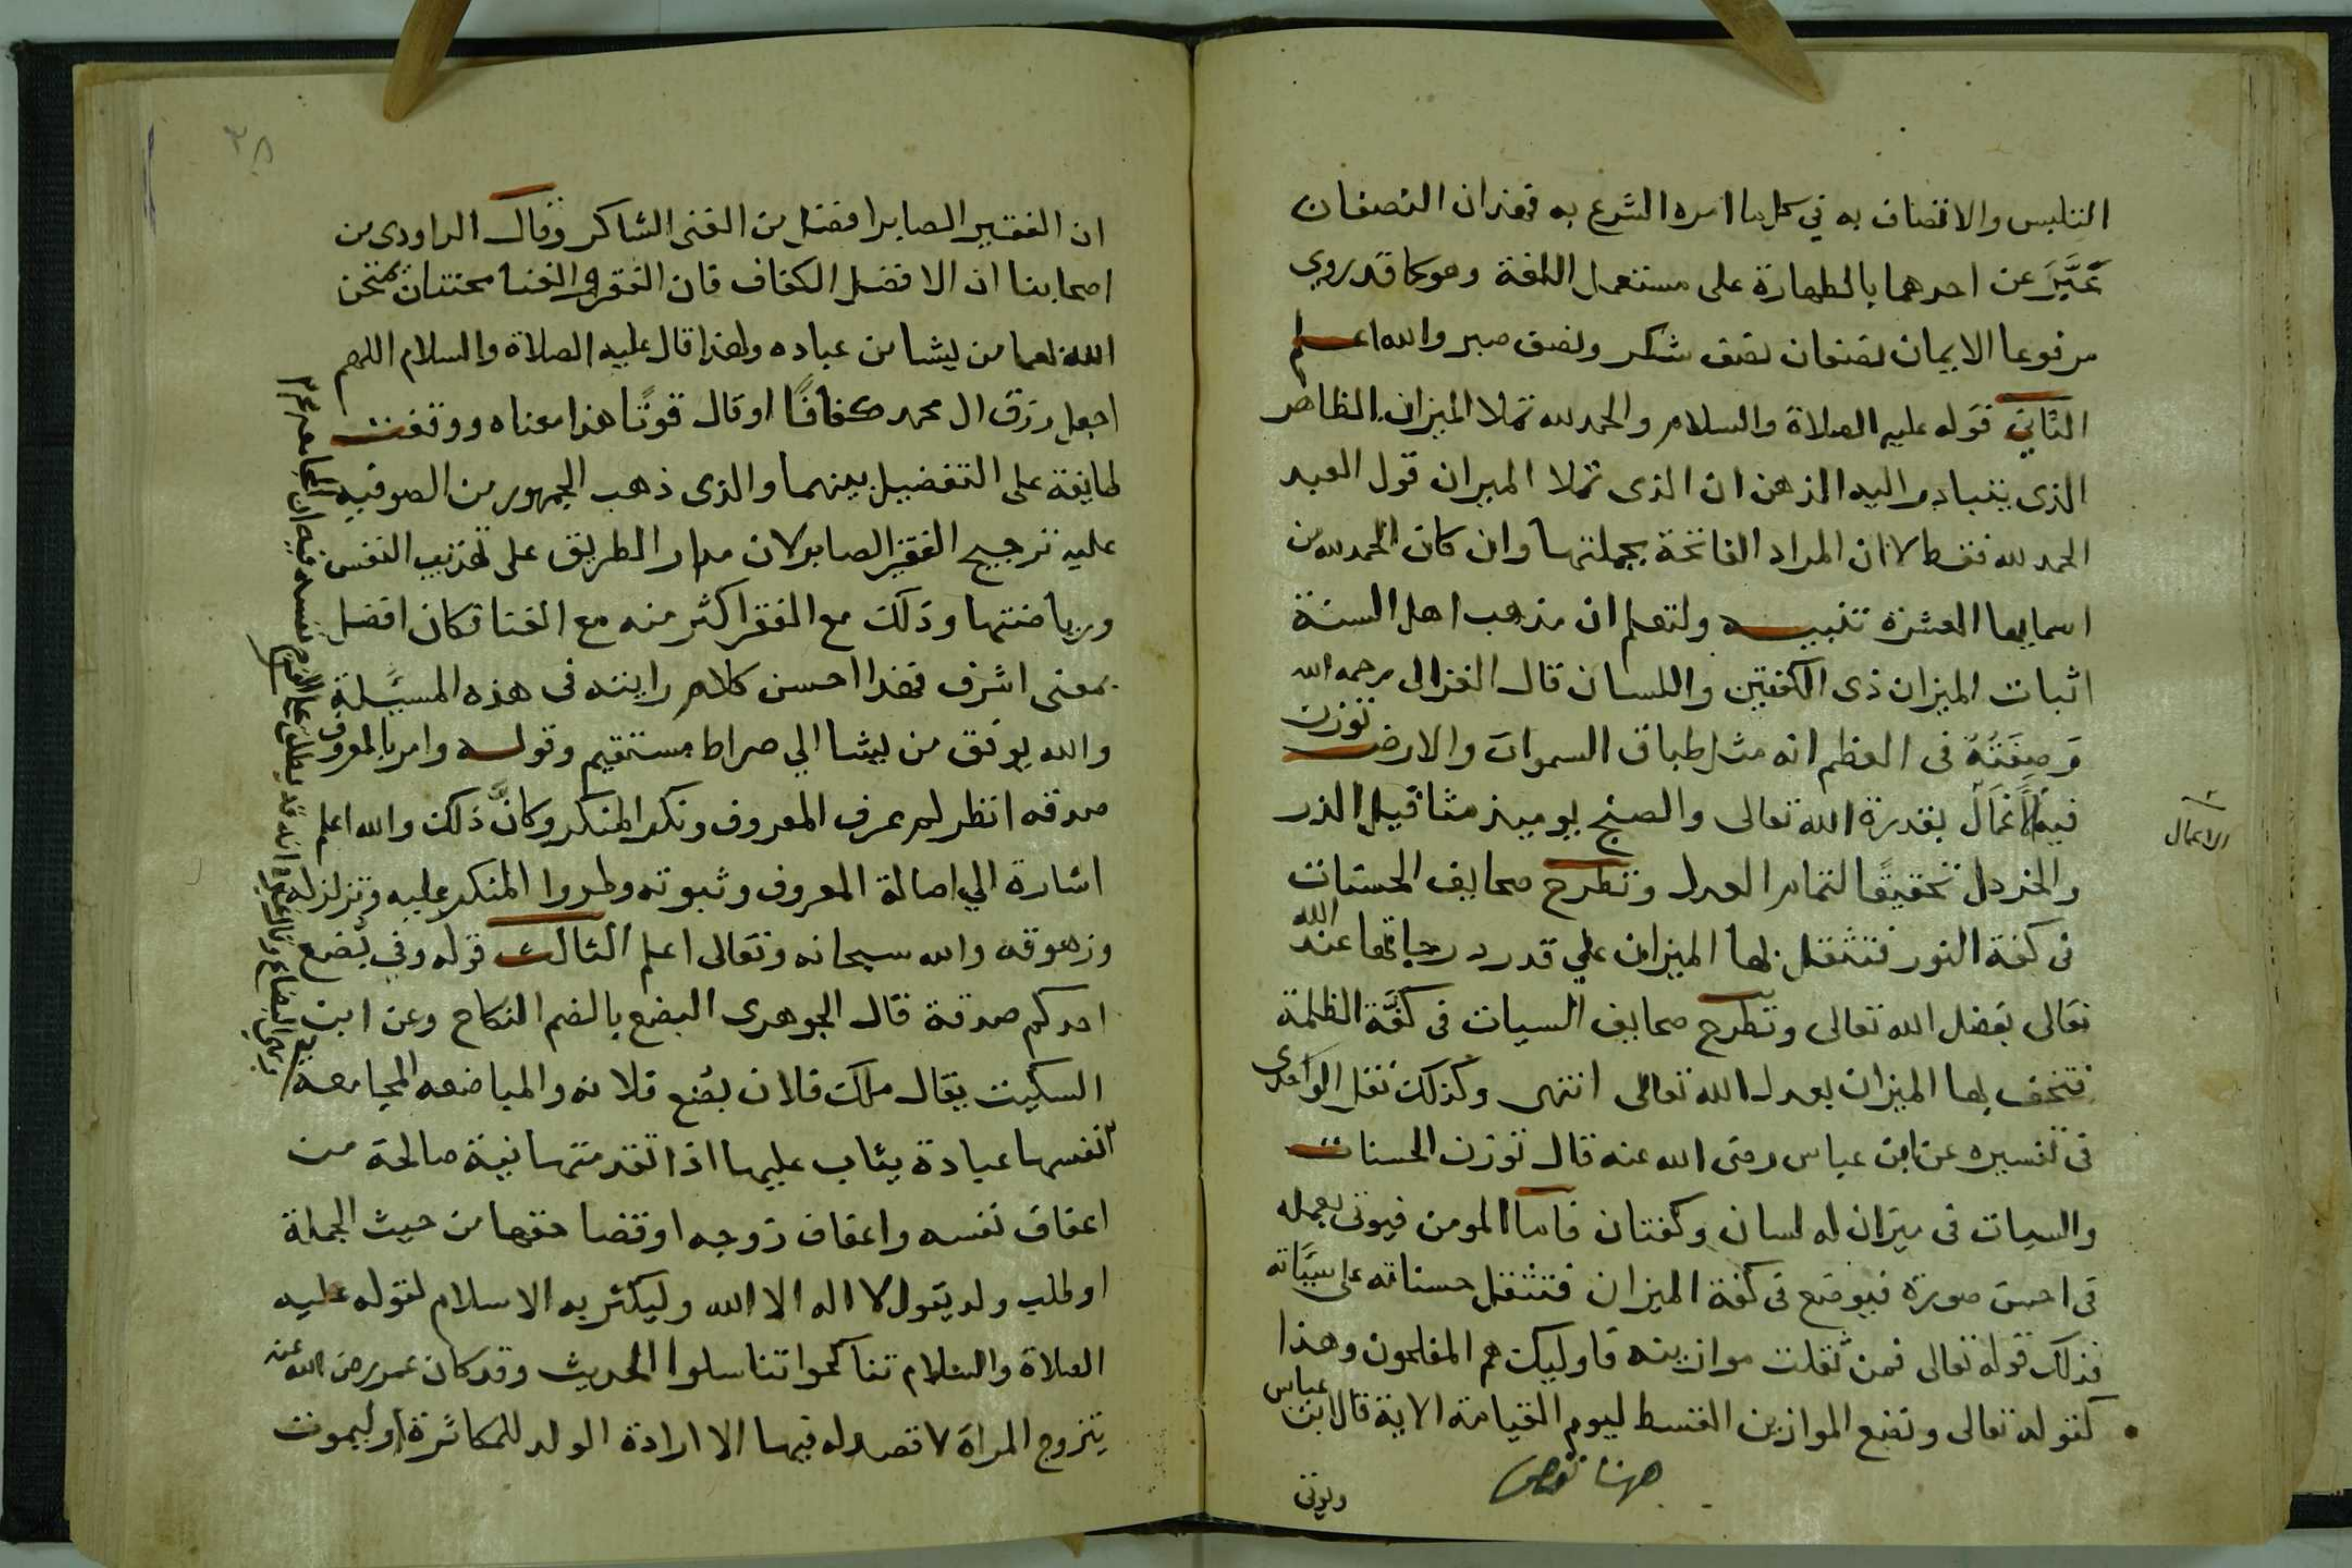 التلبس والاتصاف به في كل ما امره الشرع به فهذان النصفان
عَبَّرَ عن احدهما بالطهارة على مستعمل اللغة وهو كما قد روي
مرفوعا الايمان نصفان نصف شكر ونصف صبر والله اعلم
الثاني قوله عليه الصلاة والسلام والحمد لله تملا الميزان الظاهر
الذي يتبادر اليه الذهن ان الذي تملا الميزان قول العبد
الحمد لله فقط لا ان المراد الفاتحة بجملتها وان كان الحمد لله من
اسمايها العشرة تنبيه ولتعلم ان مذهب اهل السنة
اثبات الميزان ذي الكفتين واللسان قال الغزالى رحمه الله
وَصِفَتُهُ فى العظم انه مثل طباق السموات والارض توزن
فيه الأعْمَال بقدرة الله تعالى والصنج يوميذ مثاقيل الذر
الاعمال
والخردل تحقيقًا لتمام العدل وتطرح صحايف الحسنات
فى كفة النور فتثقل بها الميزان علي قدر درجاتها عند الله
تعالى بفضل الله تعالى وتطرح صحايف السيات فى كفَّة الظلمة
فتخف بها الميزان بعدل الله تعالى انتهى وكذلك نقل الواحدى
فى تفسيره عن ابن عباس رضى الله عنه قال توزن الحسنات
والسيات فى ميزان له لسان وكفتان فاما المومن فيوتى بعمله
فى احسن صورة فيوضع فى كفة الميزان فتثقل حسناته على سيَّاته
فذلك قوله تعالى فمن ثقلت موازينه فاوليك هم المفلحون وهذا
كقوله تعالى ونضع الموازين القسط ليوم القيامة الاية قال ابن عباس
ههنا نقص
ويوتى
٣٨
ان الفقير الصابر افضل من الغنى الشاكر وقال الداودى من
اصحابنا ان الافضل الكفاف فان الفقر والغنا محنتان يمتحن
الله بهما من يشا من عباده ولهذا قال عليه الصلاة والسلام اللهم
اجعل رزق ال محمد كفافًا او قال قوتًا هذا معناه ووقفت
طايفة على التفضيل بينهما والذى ذهب الجمهور من الصوفيه
عليه ترجيح الفقير الصابر لان مدار الطريق على تهذيب النفس
ورياضتها وذلك مع الفقر اكثر منه مع الغنا فكان افضل
بمعنى اشرف فهذا احسن كلام رايته فى هذه المسيلة
والله يوفق من يشا الي صراط مستقيم وقوله وامر بالمعروف
صدقه انظر لم عرف المعروف ونكر المنكر وكأنَّ ذلك والله اعلم
اشارة الي اصالة المعروف وثبوته وطروا المنكر عليه وتزلزله
وزهوقه والله سبحانه وتعالى اعلم الثالث قوله وفي بُضع
احدكم صدقة قال الجوهرى البضع بالضم النكاح وعن ابن
السكيت يقال ملك فلان بضع فلانه والمباضعه المجامعه
انفسها عبادة يثاب عليها اذا تقدمتها نية صالحة من
اعفاف نفسه واعفاف زوجه او قضا حقها من حيث الجملة
او طلب ولد يقول لا اله الا الله وليكثر به الاسلام لقوله عليه
الصلاة والسلام تناكحوا تناسلوا الحديث وقد كان عمر رضى الله عنه
يتزوج المراة لا قصد له فيها الا ارادة الولد للمكاثرة او ليموت